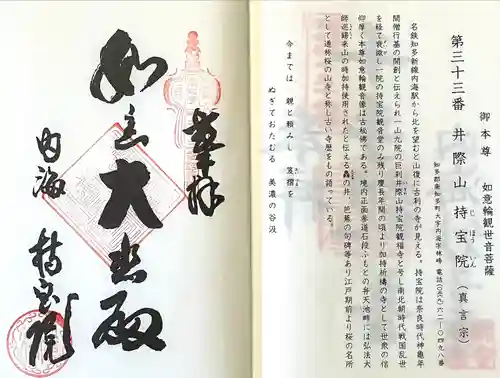 御本尊　如意輪観世音菩薩
第三十三番 井際山 持宝院（真言宗）
じほういん
知多郡南知多町大字内海字林之峰 電話（〇五六九）六二－〇四九八番
名鉄知多新線内海駅から北を望むと山復に古刹の寺が見える。持宝院は奈良時代神亀年
間僧行基の開創と伝えられ一山九院の巨刹井際山持宝院観福寺と号し南北朝時代戦国乱世
を経て衰微し一院の持宝院観音堂のみ残り慶長年間の頃より加持祈祷の寺として世衆の信
仰厚く本尊如意輪観音像は古秘佛である。境内正面参道石段ふもとの弁天池畔には弘法大
師巡錫来山の時加持使用されたと伝える轟の井、芭蕉の句碑等あり江戸期前より桜の名所
として通称桜の山寺と称し古い寺歴をもの語っている。
今までは　親と頼みし　笈摺を
ぬぎておたむる　美濃の谷汲
奉拝
如意大悲殿
内海　持宝院